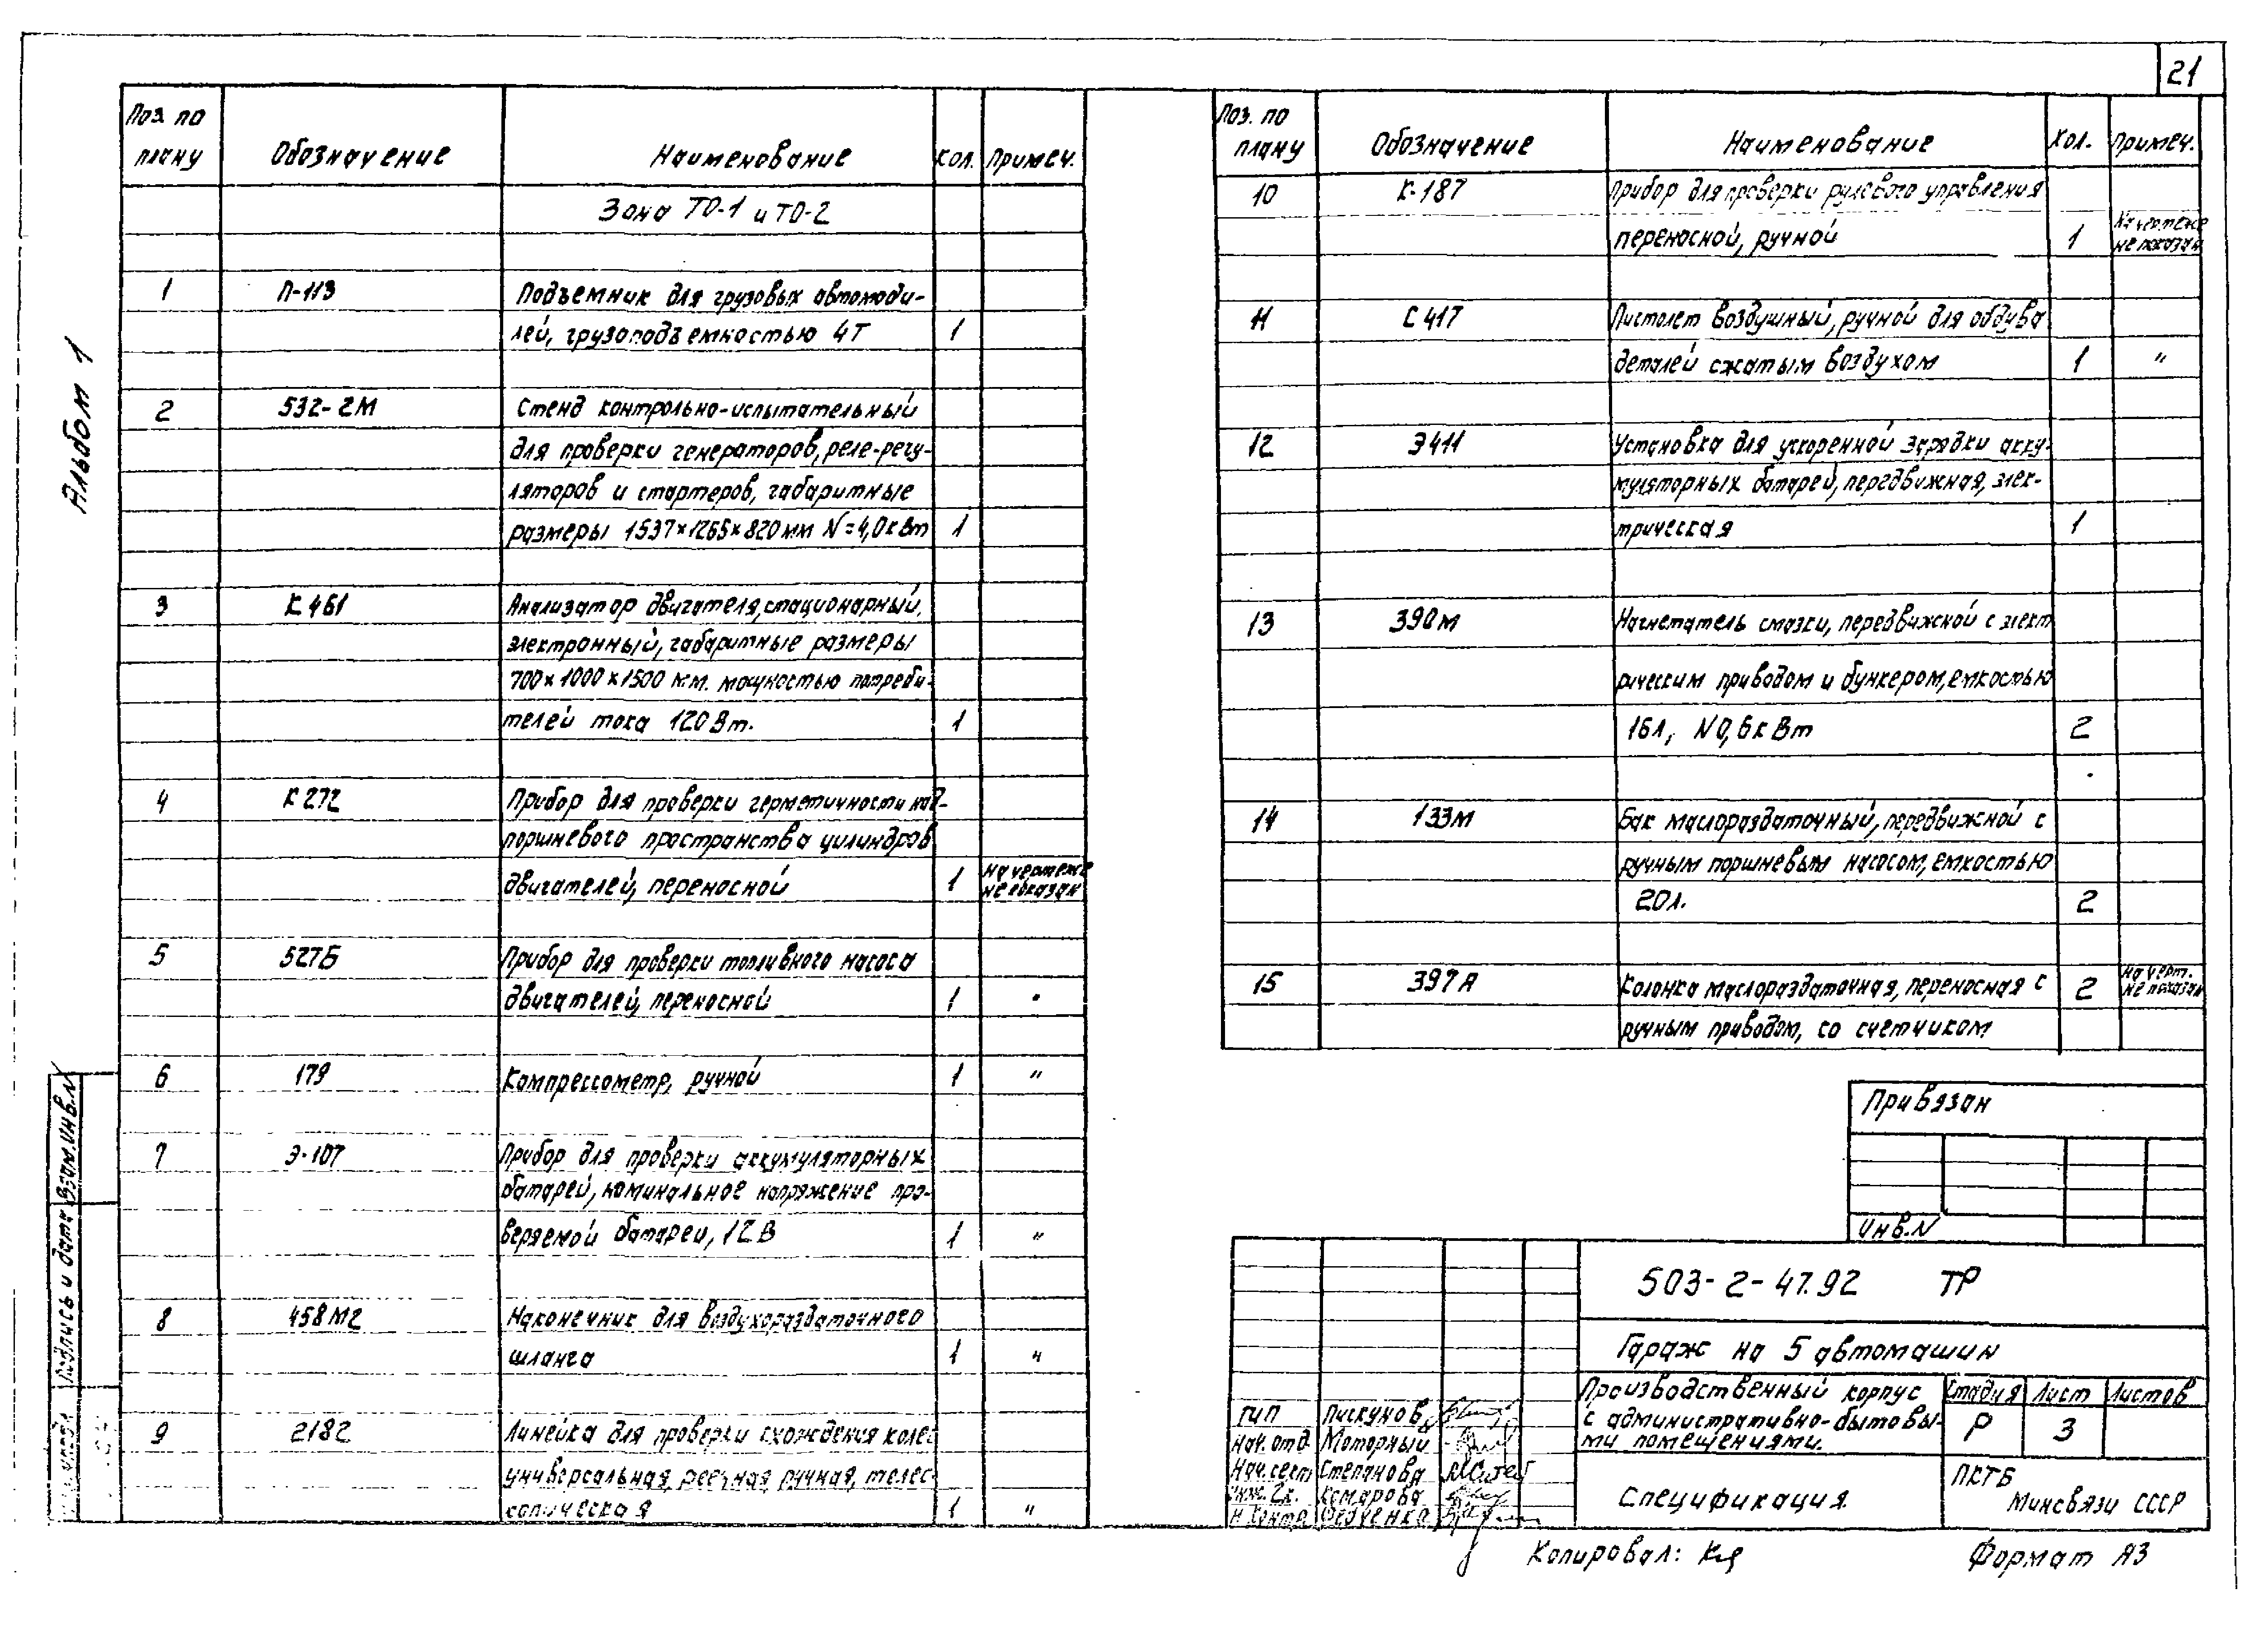 21
Альбом 1
Поз. по плану Обозначение Наименование Кол. Примеч.
Зона ТО-1 и ТО-2
1 П-113 Подъемник для грузовых автомоби-
лей, грузоподъемностью 4Т 1
2 532-2М Стенд контрольно-испытательный
для проверки генераторов, реле-регу-
ляторов и стартеров, габаритные
размеры 1537×1265×820 мм N=4,0кВт 1
3 К 461 Анализатор двигателя, стационарный,
электронный, габаритные размеры
700×1000×1500 мм. мощностью потреби-
телей тока 120 Вт. 1
4 К 272 Прибор для проверки герметичности над-
поршневого пространства цилиндров
двигателей, переносной 1 На чертеже не показан
5 527Б Прибор для проверки топливного насоса
двигателей, переносной 1 "
6 179 Компрессометр, ручной 1 "
7 Э-107 Прибор для проверки аккумуляторных
батарей, номинальное напряжение про-
веряемой батареи, 12 В 1 "
8 458М2 Наконечник для воздухораздаточного
шланга 1 "
9 2182 Линейка для проверки схождения колес
универсальная, реечная, ручная, телес-
копическая 1 "
Поз. по плану Обозначение Наименование Кол. Примеч.
10 К-187 Прибор для проверки рулевого управления
переносной, ручной 1 На чертеже не показан
11 С 417 Пистолет воздушный, ручной для обдува
деталей сжатым воздухом 1 "
12 Э411 Установка для ускоренной зарядки акку-
муляторных батарей, передвижная, элек-
трическая 1
13 390М Нагнетатель смазки, передвижной с элект
рическим приводом и бункером, емкостью
16л, N 0,6 кВт 2
14 133М Бак маслораздаточный, передвижной с
ручным поршневым насосом, емкостью
20л. 2
15 397А Колонка маслораздаточная, переносная с 2 На черт. не показан
ручным приводом, со счетчиком
Привязан
Инв.N
503-2-47.92 ТР
Гараж на 5 автомашин
Производственный корпус
с административно-бытовы-
ми помещениями.
Стадия Лист Листов
Р 3
Спецификация.
ПКТБ
Минсвязи СССР
ГИП Пискунов
Нач. отд. Моторный
Нач. сект Степанова
Инж. 2к. Комарова
Н. Контр.
Взам. Инв.N
Подпись и дата
Копировал: Формат А3